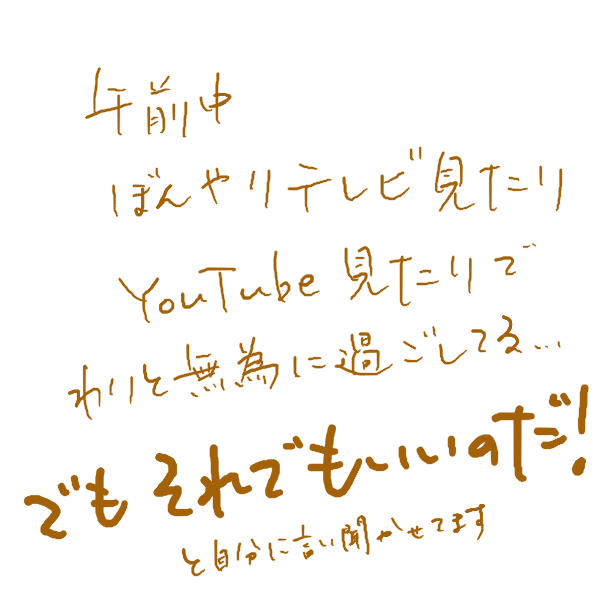 午前中
ぼんやりテレビ見たり
YouTube 見たりで
わりと無為に過ごしてる...
でもそれでもいいのだ!
と自分に言い聞かせてます